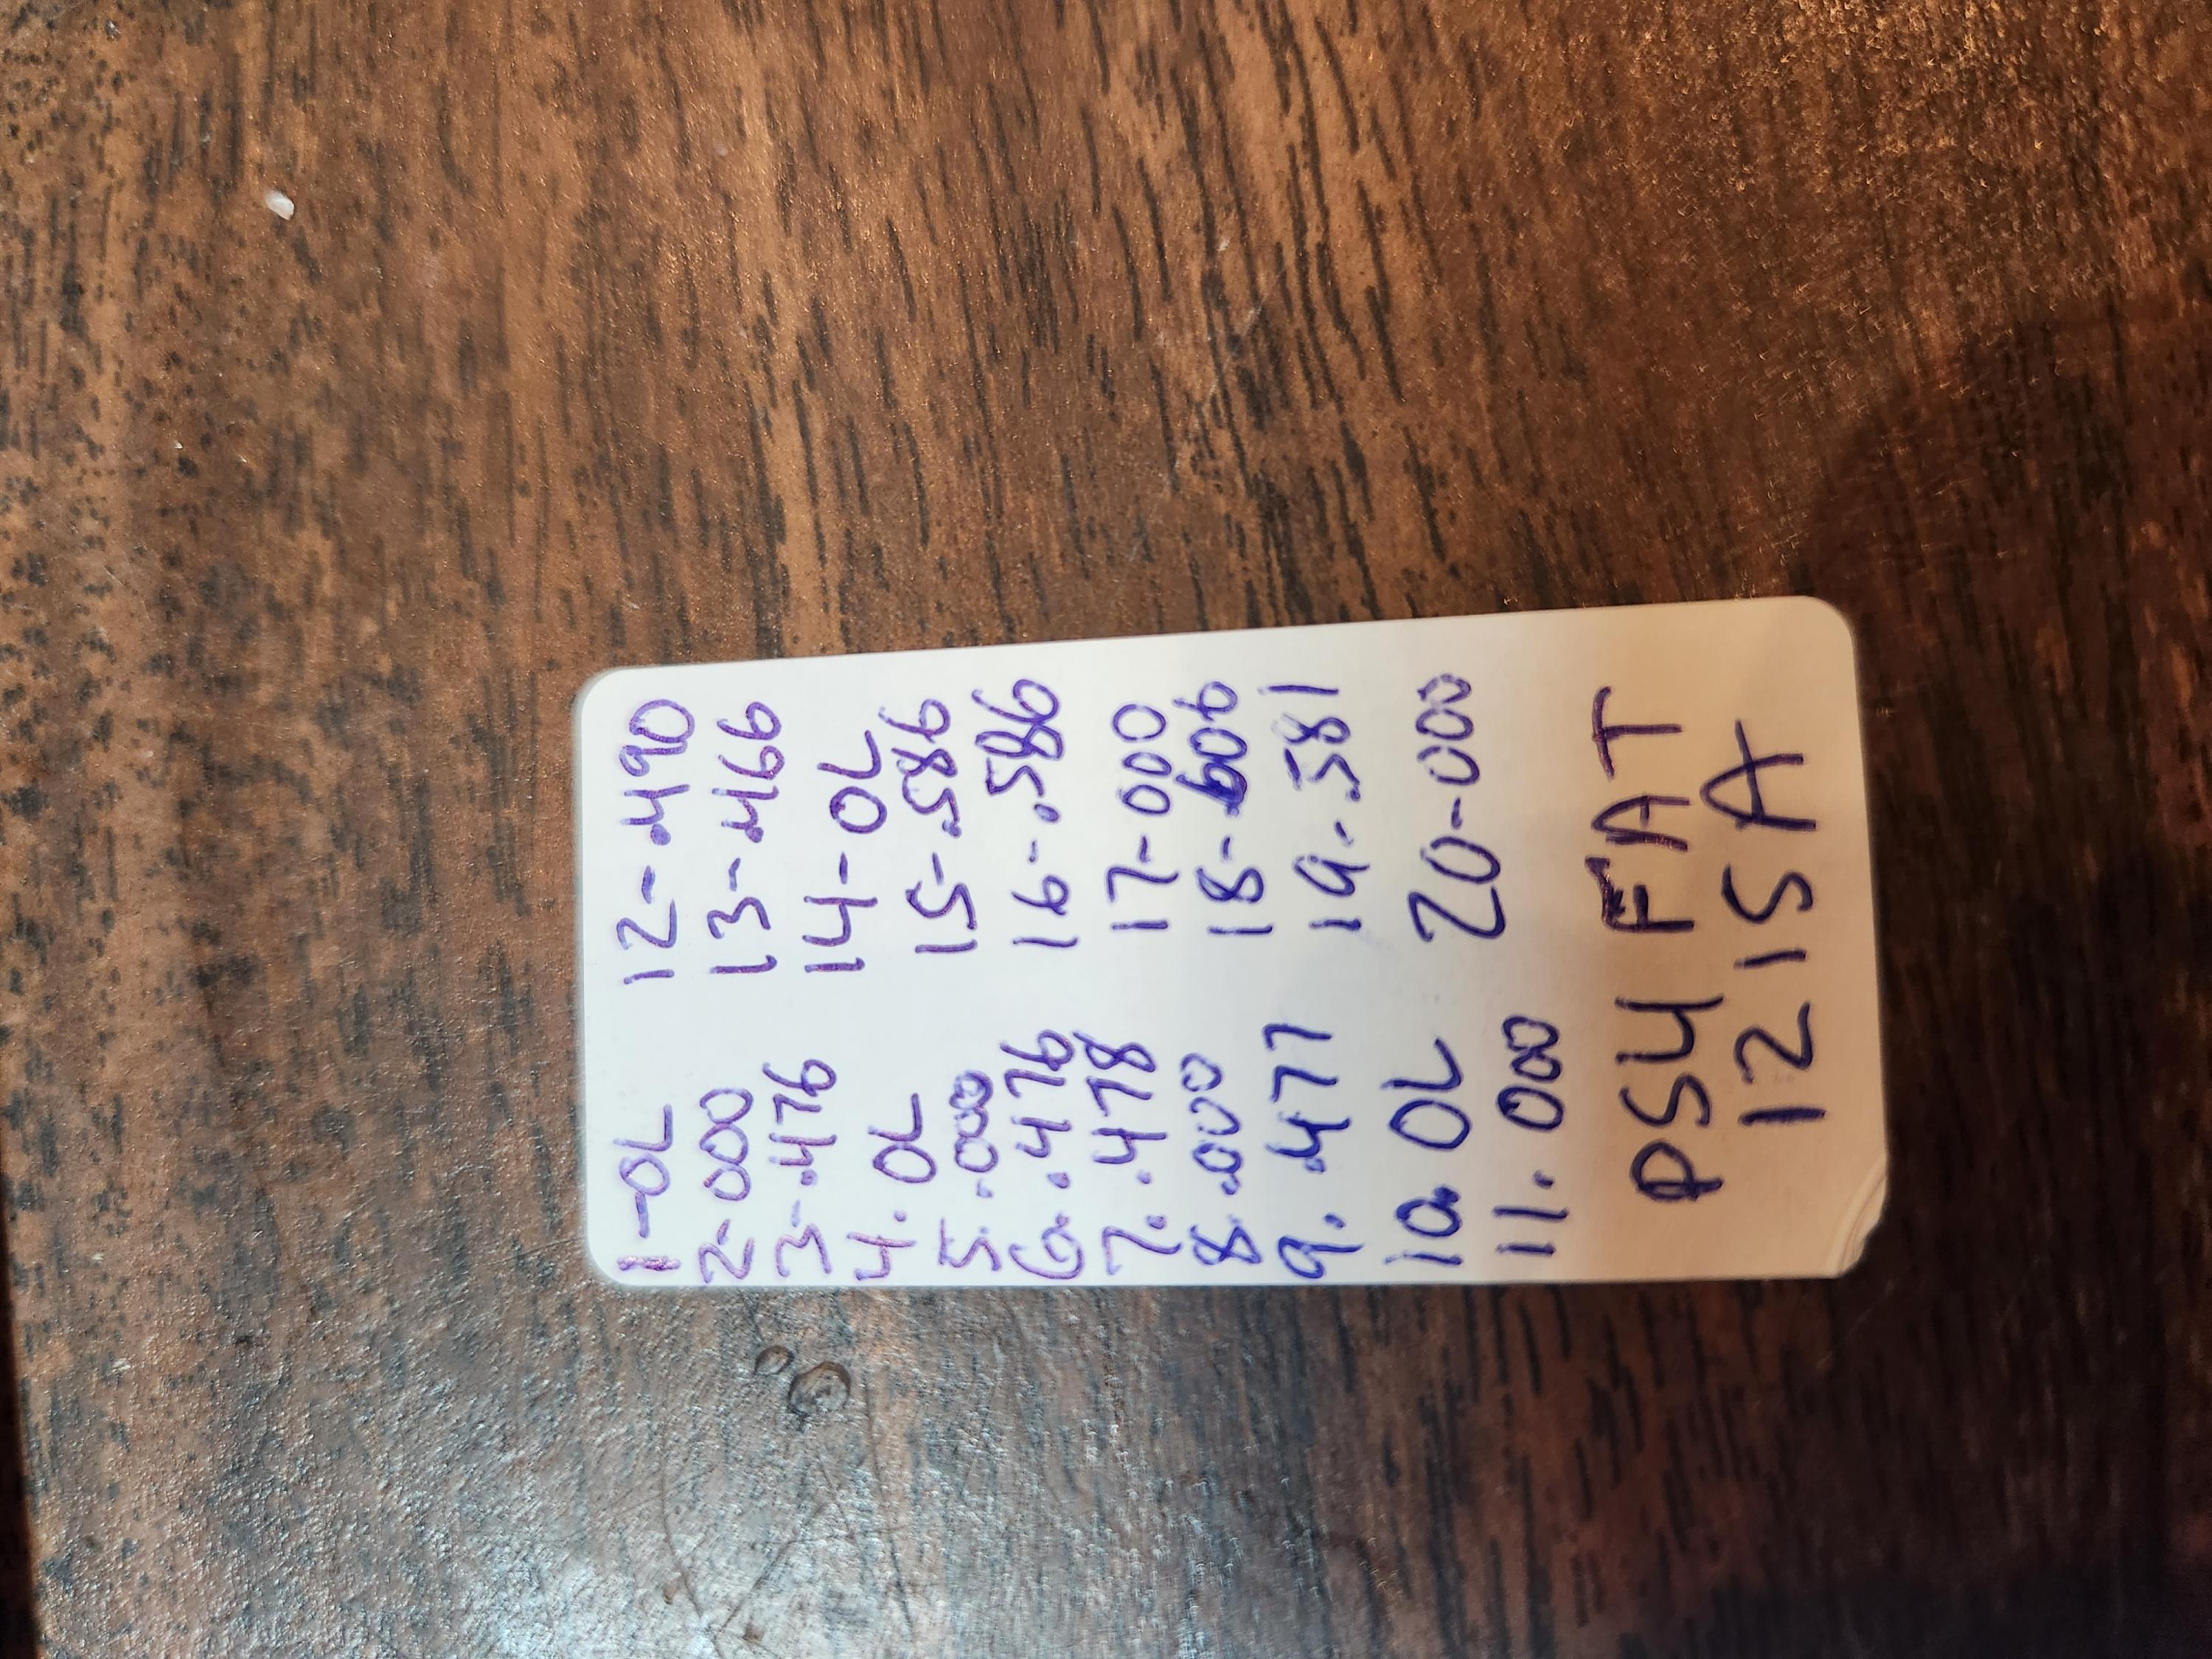 1-OL
2-000
3-.476
4. OL
5..000
6..476
7. .478
8 .000
9. .477
10. OL
11. 000
12-.490
13-.466
14-OL
15-.586
16-.586
17-000
18-.606
19-.581
20-000
PS4 FAT
1215A